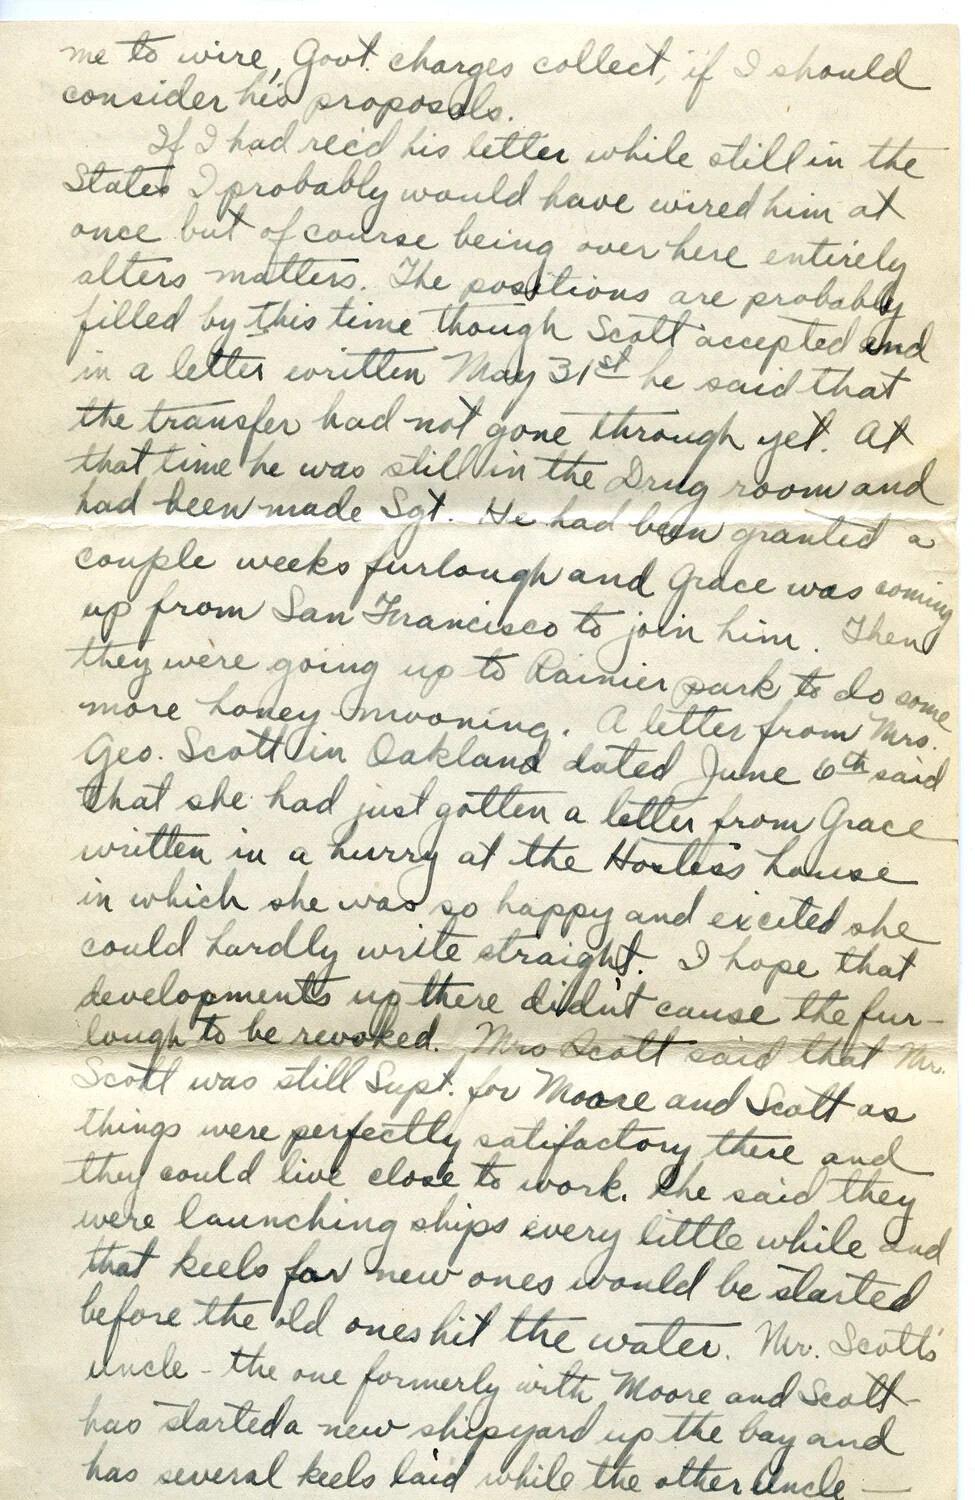 me to wire, Govt. charges collect, if I should
consider his proposals.
If I had rec'd his letter while still in the
States I probably would have wired him at
once but of course being over here entirely
alters matters. The positions are probably
filled by this time though Scott accepted and
in a letter written May 31st he said that
the transfer had not gone through yet. At
that time he was still in the Drug room and
had been made Sgt. He had been granted a
couple weeks furlough and Grace was coming
up from San Francisco to join him. Then
they were going up to Rainier park to do some
more honey-mooning. A letter from Mrs.
Geo. Scott in Oakland dated June 6th said
that she had just gotten a letter from Grace
written in a hurry at the Hostess house
in which she was so happy and excited she
could hardly write straight. I hope that
developments up there didn't cause the fur-
lough to be revoked. Mrs Scott said that Mr.
Scott was still Supt. for Moore and Scott as
things were perfectly satifactory there and
they could live close to work. She said they
were launching ships every little while and
that keels for new ones would be started
before the old ones hit the water. Mr. Scott's
uncle - the one formerly with Moore and Scott -
has started a new shipyard up the bay and
has several keels laid while the other uncle —